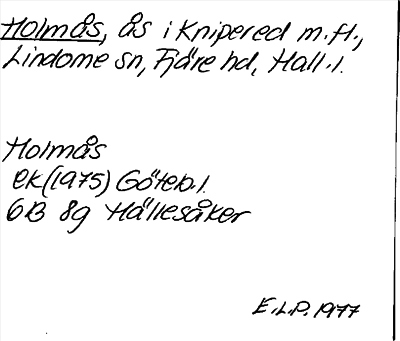 Holmås, ås i Knipered m.fl.,
Lindome sn, Fjäre hd, Hall.l.
Holmås
ek (1975) Göteb.l.
6B 8g Hällesåker
E.L.P. 1977